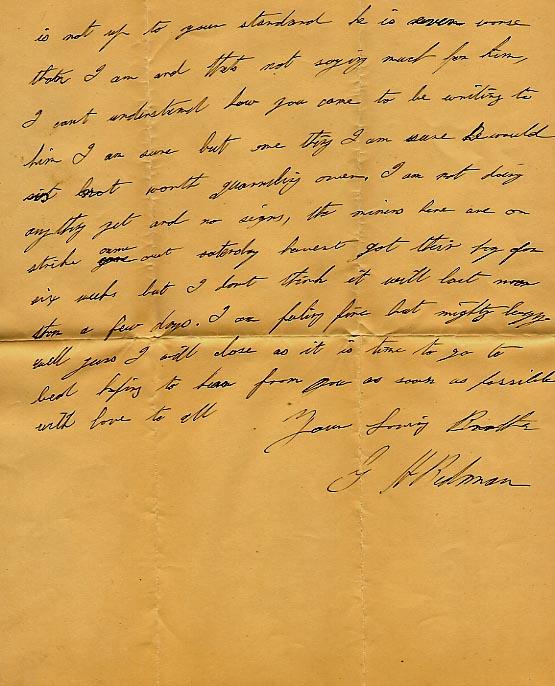 is not up to your standard he is even worse
than I am and thats not saying much for him,
I cant understand how you come to be writing to
him I am sure but one thing I am sure would
not worth quarreling over. I am not doing
anything yet and no signs, the miners here are on
strike came out saterday havent got their pay for
six weeks but I dont think it will last more
than a few days. I am feeling fine but mighty
well guess I will close as it is time to go to
bed hoping to hear from you as soon as possible
with love to all
Your Loving Brother
G H Redman